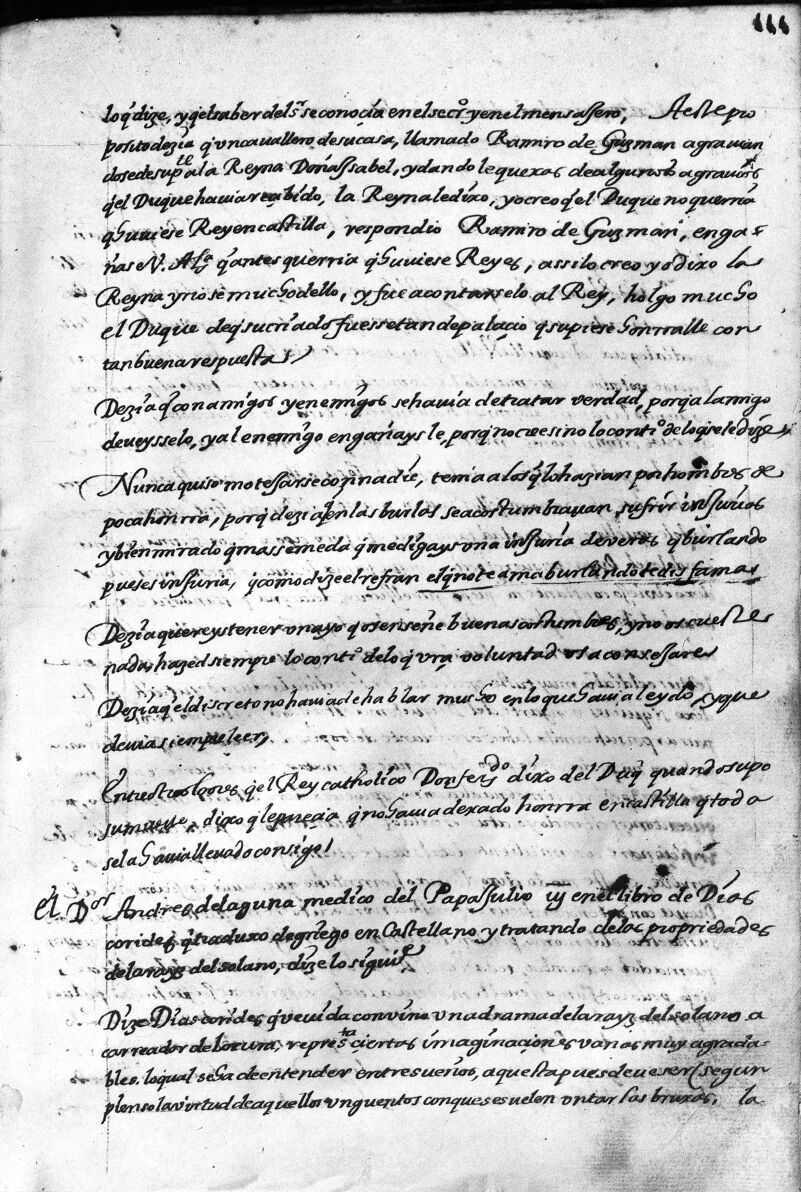 111
lo q̃ dize, y q̃ el saber del sr se conocia en el secro y en el mensajero, A este pro
posito dezia q̃ un cavallero de su casa, llamado Ramiro de Guzman agravian
dose de su pte a la Reyna Doña Issabel, y dandole quexas de algunos agravios
q̃ el Duque havia recebido, la Reyna le dixo, yo creo q̃ el Duque no querria
q̃ huviese Rey en castilla, respondio Ramiro de Guzman, enga
ñase V. Alte q̃ antes querria q̃ huviese Reyes, assi lo creo yo dixo la
Reyna y riose mucho dello, y fue a contarselo al Rey, holgo mucho
el Duque de q̃ su criado fuesse tan de palacio q̃ supiese honrralle con
tan buena respuesta.
Dezia q̃ con amigos y enemigos se havia de tratar verdad, porq̃ al amigo
deveysselo, y al enemigo engañaysle, porq̃ no cree sino lo contro de lo q̃ se le dize
Nunca quiso motejarse con nadie, tenia a los q̃ lo hazian por hombres de
poca honrra, porq̃ dezia q̃ en las burlas se acostumbravan sufrir injurias
y bien mirado q̃ mas se me da q̃ me digays una injuria de veras q̃ burlando
pues es injuria, q̃ como dize el refran el q̃ no te ama burlando te disfama
Dezia quereys tener un ayo q̃ os enseñe buenas costumbres, y no os cueste
nada, hazed siempre lo contro de lo q̃ vra voluntad os aconsejare
Dezia q̃ el discreto no havia de hablar mucho en lo que havia leydo, y que
devia siempre leer,
Entre otros loores q̃ el Rey catholico Don ferdo dixo del Duq̃ quando supo
su muerte, dixo q̃ le parecia q̃ no havia dexado honrra en castilla q̃ toda
se la havia llevado consigo
El Dor Andres de laguna medico del Papa Julio iij en el libro de Dios
corides q̃ traduxo de griego en Castellano y tratando de las propriedades
de la rayz del solano, dize lo siguite
Dize Dioscorides q̃ bevida con vino una drama de la rayz del solano a
carreador de locura, represta ciertas imaginaciones vanas muy agrada
bles. lo qual se ha de entender entre sueños, aquesta pues deve ser (segun
pienso la virtud de aquellos unguentos con que se suelen untar las bruxas, la